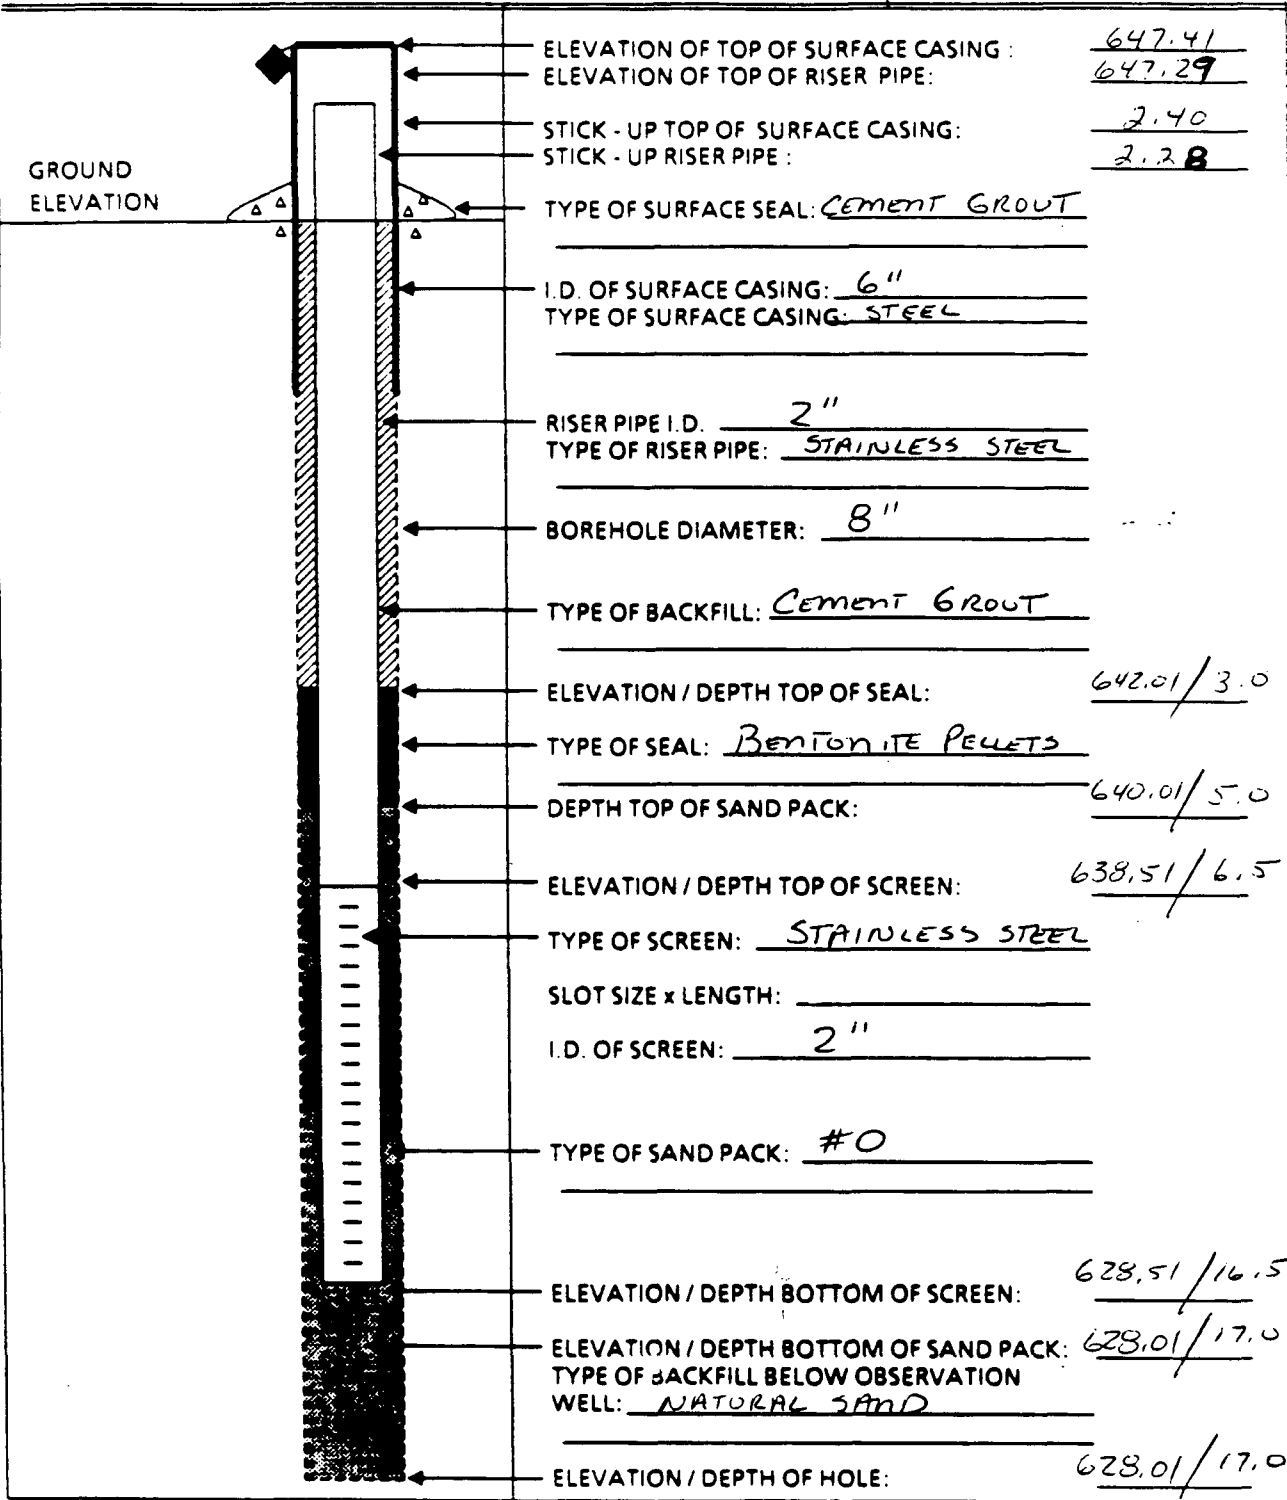 ELEVATION OF TOP OF SURFACE CASING : 647.41
ELEVATION OF TOP OF RISER PIPE: 647.29
STICK - UP TOP OF SURFACE CASING: 2.40
STICK - UP RISER PIPE : 2.28
GROUND
ELEVATION
TYPE OF SURFACE SEAL: CEMENT GROUT
I.D. OF SURFACE CASING: 6"
TYPE OF SURFACE CASING: STEEL
RISER PIPE I.D. 2"
TYPE OF RISER PIPE: STAINLESS STEEL
BOREHOLE DIAMETER: 8"
TYPE OF BACKFILL: CEMENT GROUT
ELEVATION / DEPTH TOP OF SEAL: 642.01/3.0
TYPE OF SEAL: BENTONITE PELLETS
DEPTH TOP OF SAND PACK: 640.01/5.0
ELEVATION / DEPTH TOP OF SCREEN: 638.51/6.5
TYPE OF SCREEN: STAINLESS STEEL
SLOT SIZE x LENGTH:
I.D. OF SCREEN: 2"
TYPE OF SAND PACK: #0
ELEVATION / DEPTH BOTTOM OF SCREEN: 628.51/16.5
ELEVATION / DEPTH BOTTOM OF SAND PACK: 628.01/17.0
TYPE OF BACKFILL BELOW OBSERVATION
WELL: NATURAL SAND
ELEVATION / DEPTH OF HOLE: 628.01/17.0